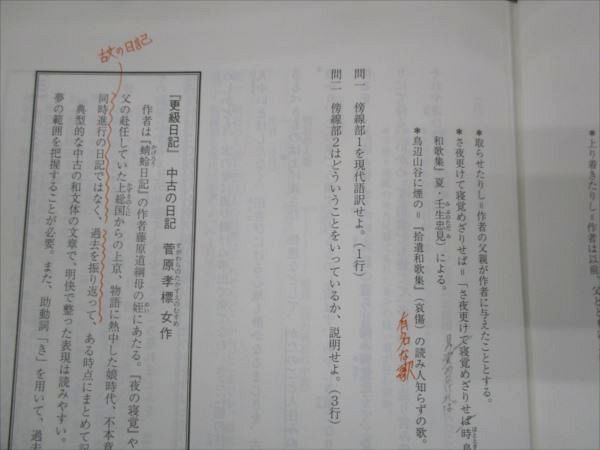 *上り着きたりし=作者は以前、父とと
*取らせたりし=作者の父親が作者に与えたこととする。
*さ夜更けて寝覚めざりせば=「さ夜更けて寝覚めざりせば時鳥
和歌集』夏・壬生忠見)による。
*鳥辺山谷に煙の=『拾遺和歌集』(哀傷)の読み人知らずの歌。
有名な歌
問一 傍線部1を現代語訳せよ。(1行)
問二 傍線部2はどういうことをいっているか、説明せよ。(3行)
古文の日記
『更級日記』 中古の日記 菅原孝標女作
作者は『蜻蛉日記』の作者藤原道綱母の姪にあたる。『夜の寝覚』や
父の赴任していた上総国からの上京、物語に熱中した娘時代、不本意
同時進行の日記ではなく、過去を振り返って、ある時点にまとめて記
典型的な中古の和文体の文章で、明快で整った表現は読みやすい。
夢の範囲を把握することが必要。また、助動詞「き」を用いて、過去